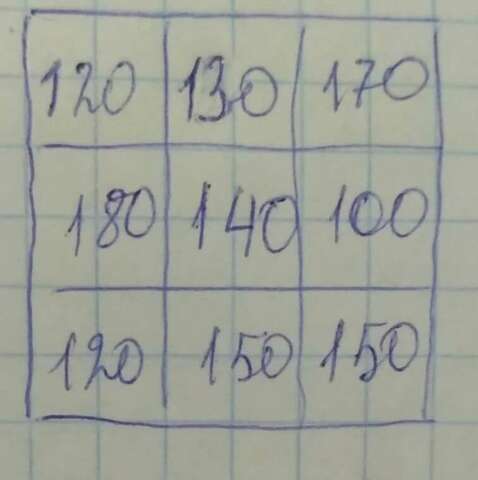 120 130 170
180 140 100
120 150 150